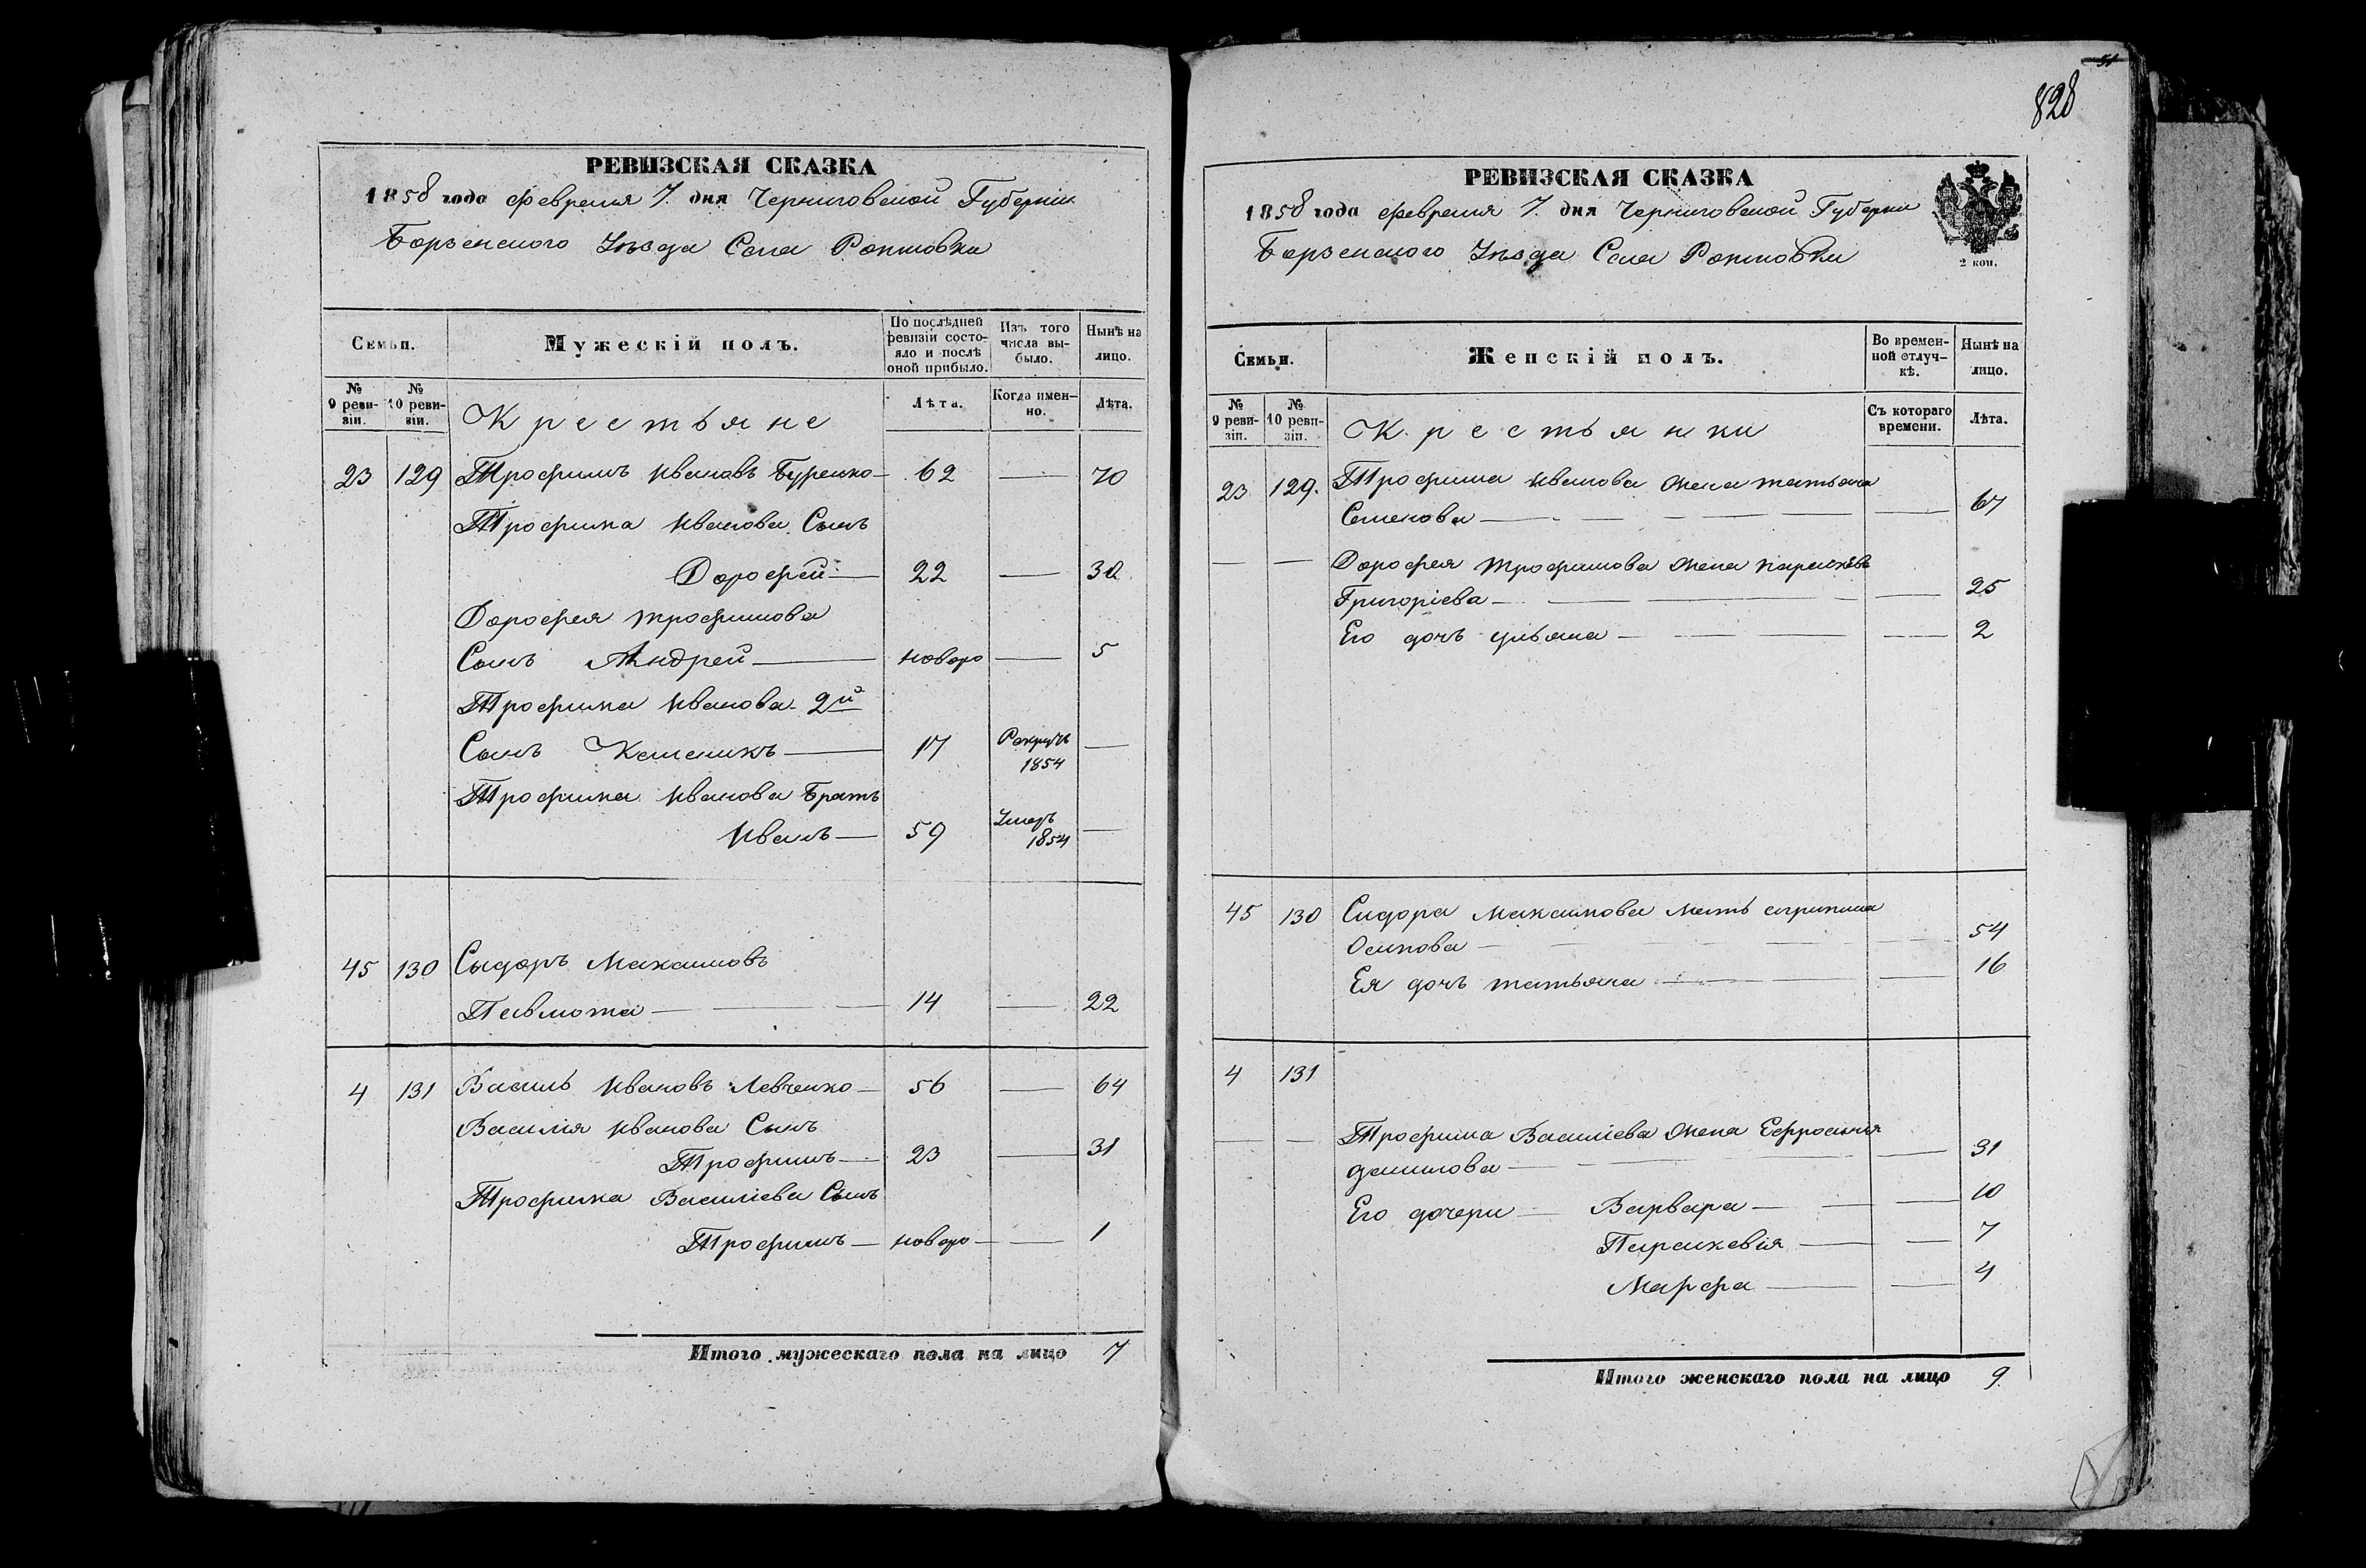 РЕВИЗСКАЯ СКАЗКА
1858 года Февраля 7. дня Черниговской Губерніи
Борзенского Уѣзда Села
Семьи.
Мужескій полъ.
По послѣдней ревизіи состояло и послѣ оной прибыло.
Изъ того числа выбыло.
Нынѣ на лицо.
№ 9 ревизіи.
№ 10 ревизіи.
Крестьяне
Лѣта.
Когда именно.
Лѣта.
23 129 Трофимъ Ивановъ Буренко — 62 — 70
Трофима Иванова Сынъ
Дорофей — 22 — 30
Дорофея Трофимова
Сынъ Андрей — новоро — 5
Трофима Иванова 2й
Сынъ — 17 Рекрутъ 1854 —
Трофима Иванова Братъ
Иванъ — 59 Умеръ 1854 —
45 130 Сыдоръ Максимовъ
— 14 — 22
4 131 Василь Ивановъ Левченко — 56 — 64
Василія Иванова Сынъ
Трофимъ — 23 — 31
Трофима Василіева Сынъ
Трофимъ — новоро — 1
Итого мужескаго пола на лицо 7
51
828
РЕВИЗСКАЯ СКАЗКА
1858 года Февраля 7. дня Черниговской Губерніи
Борзенского Уѣзда Села
2 коп.
Семьи.
Женскій полъ.
Во временной отлучкѣ.
Нынѣ на лицо.
№ 9 ревизіи.
№ 10 ревизіи.
Крестьянки
Съ котораго времени.
Лѣта.
23 129. Трофима Иванова жена татьяна
Семенова — — 67
— — Дорофея Трофимова жена параскѣва
Григоріева — — 25
Его дочь ульяна — — 2
45 130 Сидора Максимова мать агрипина
Осипова — 54
Ея дочь татьяна — — 16
4 131
— — Трофима Василіева жена Ефросинья
данилова — — 31
Его дочери — Варвара — — 10
Параскевія — — 7
Марфа — — 4
Итого женскаго пола на лицо 9.